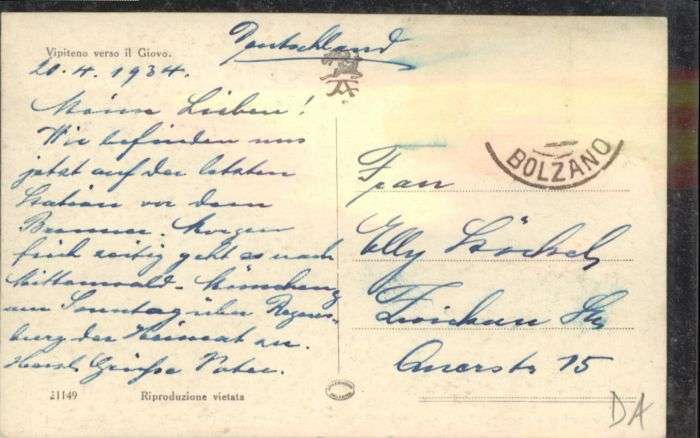 Vipiteno verso il Giovo.
Deutschland
20.4.1934.
Meine Lieben!
Wir befinden uns
jetzt auf der letzten
Station vor dem
Brenner. Morgen
früh zeitig geht es nach
Mittenwald - München,
am Sonntag über Regens-
burg der Heimat zu.
Herzl. Grüße Vater.
BOLZANO
Frau
Elly
Zwickau
15
21149
Riproduzione vietata
DA